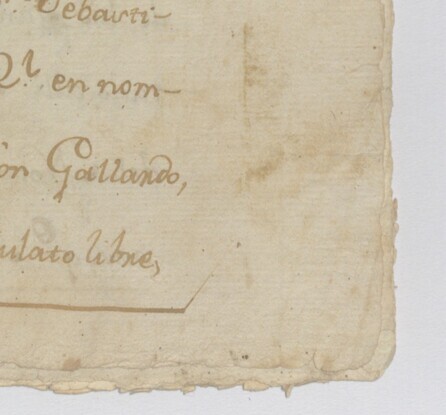 Sebasti-
Ql. en nom-
ón Gallardo,
ulato libre,